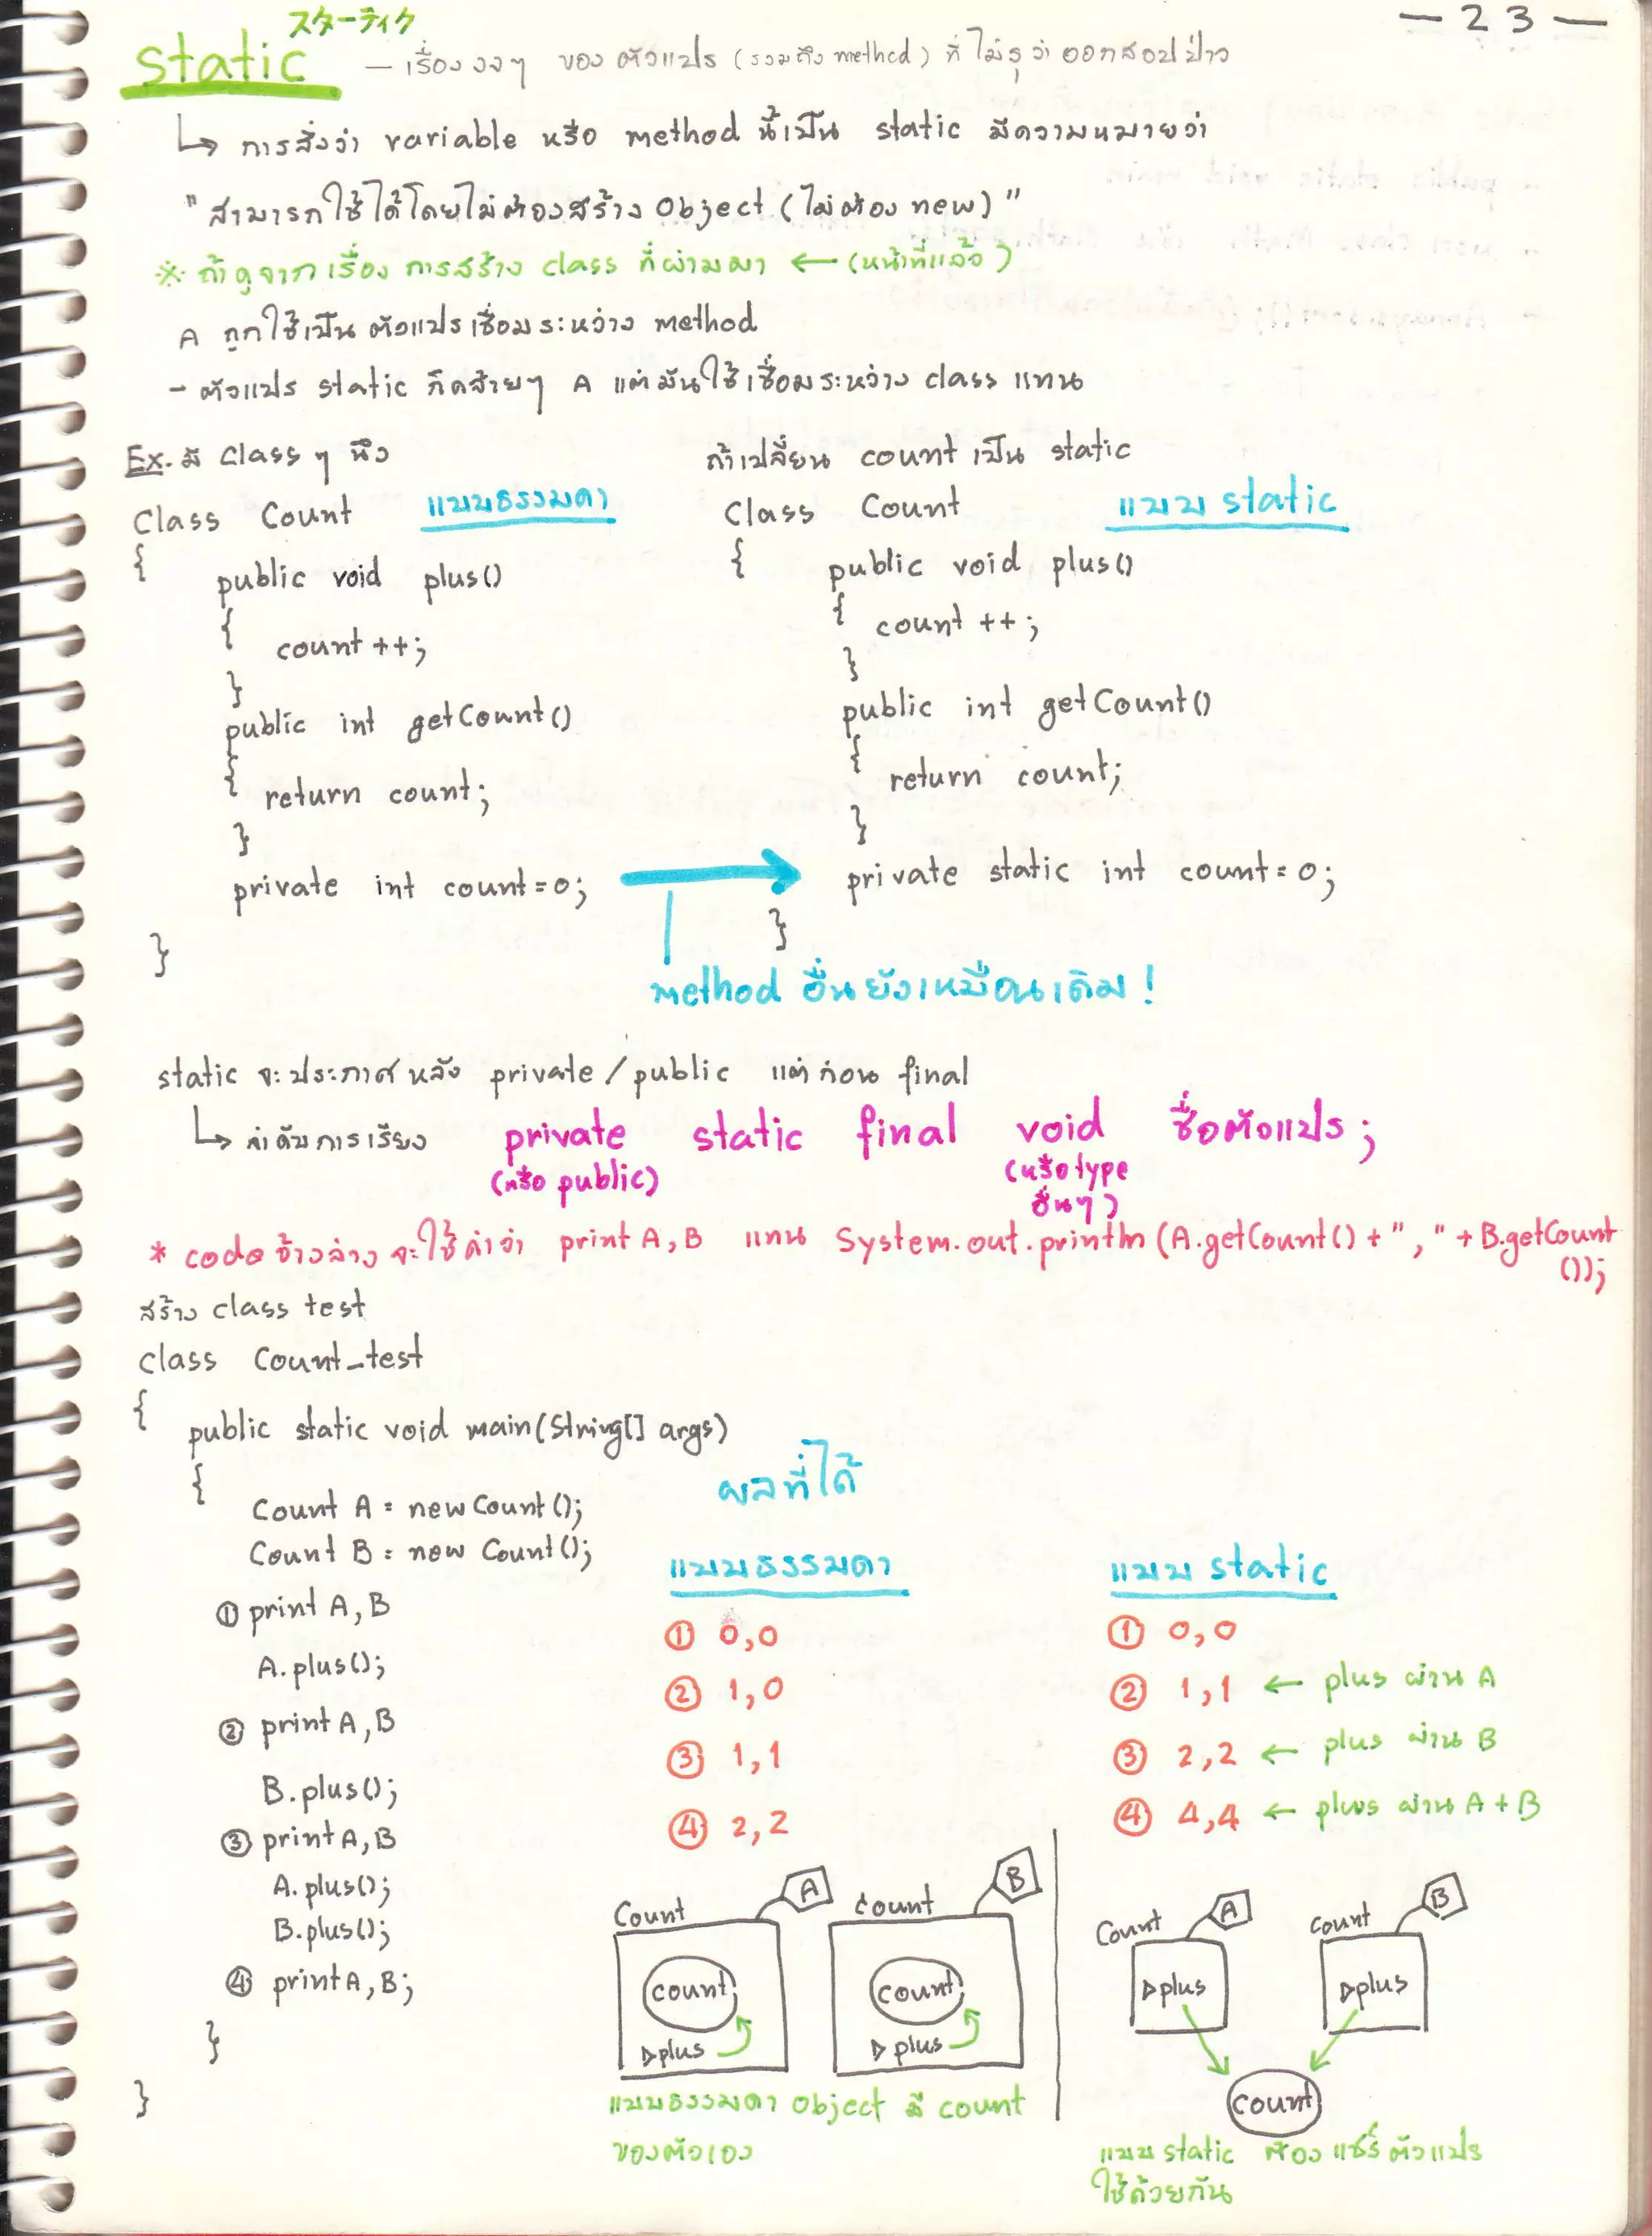 — 23 —
スターティク
static — เรื่องงงๆ ของตัวแปร (รวมถึง method) ที่ไม่รุว่าออกสอบป่าว
↳ การสั่งว่า variable หรือ method นี้เป็น static มีความหมายว่า
"สามารถใช้ได้โดยไม่ต้องสร้าง Object (ไม่ต้อง new)"
※ ถ้าดูจากเรื่อง การสร้าง class ที่ผ่านมา ← (หน้าที่แล้ว)
A ถูกใช้เป็น ตัวแปรเชื่อมระหว่าง method
- ตัวแปร static ก็คล้ายๆ A แต่มันใช้เชื่อมระหว่าง class แทน
Ex. มี class ๆ นึง
class Count แบบธรรมดา
{
public void plus()
{
count ++;
}
public int getCount()
{
return count;
}
private int count = 0;
}
ถ้าเปลี่ยน count เป็น static
class Count แบบ static
{
public void plus()
{
count ++;
}
public int getCount()
{
return count;
}
private static int count = 0;
}
method อื่นยังเหมือนเดิม!
static จะประกาศหลัง private / public แต่ก่อน final
↳ ลำดับการเรียง private static final void ชื่อตัวแปร;
(หรือ public) (หรือ type
อื่นๆ)
* code ข้างล่าง จะใช้คำว่า print A, B แทน System.out.println (A.getCount() + "," + B.getCount
());
สร้าง class test
class Count_test
{
public static void main(String[] args)
{
Count A = new Count();
Count B = new Count();
① print A, B
A.plus();
② print A, B
B.plus();
③ print A, B
A.plus();
B.plus();
④ print A, B;
}
}
ผลที่ได้
แบบธรรมดา
① 0,0
② 1,0
③ 1,1
④ 2,2
แบบ static
① 0,0
② 1,1 ← plus ผ่าน A
③ 2,2 ← plus ผ่าน B
④ 4,4 ← plus ผ่าน A + B
Count A
count
▷plus
count B
count
▷plus
แบบธรรมดา object มี count
ของตัวเอง
Count A
▷plus
Count B
▷plus
count
แบบ static ต้องแชร์ตัวแปร
ใช้ด้วยกัน